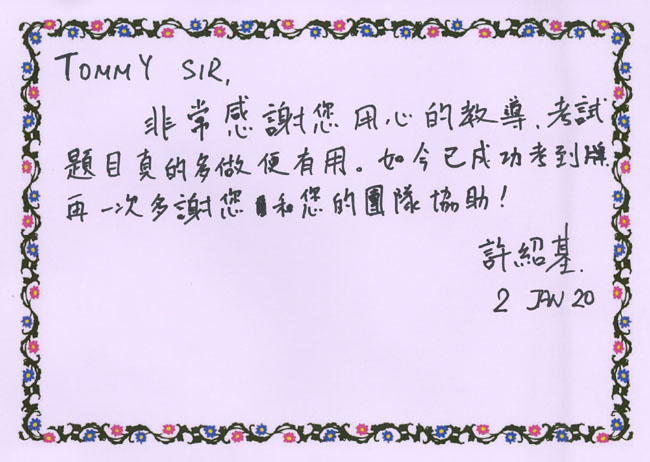 TOMMY SIR,
非常感謝您用心的教導、考試
題目真的多做便有用。如今已成功考到牌
再一次多謝您和您的團隊協助!
許紹基.
2 JAN 20